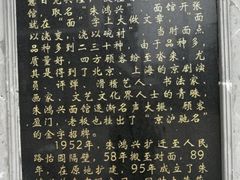 馆,兴 面馆开张
就在“面”字上大做文章
以浇变,浇以碗衬 当时面点
品种多到二三十种。由于品种多
质量好,四方顾客纷至沓来。尤
其是得到了北京、上海的京剧演
员、评弹、滑稽艺人、国画
画家、文艺文化界人士的青睐
朱鸿兴面馆逐渐名声大振,顾客
盈门,朱鸿兴也有了“京沪驰名”
的金字招牌。
1952年,朱鸿兴护迁至人民
路怡园隔壁,58年搬至对面,89
年,在原地扩建,95年成立了朱